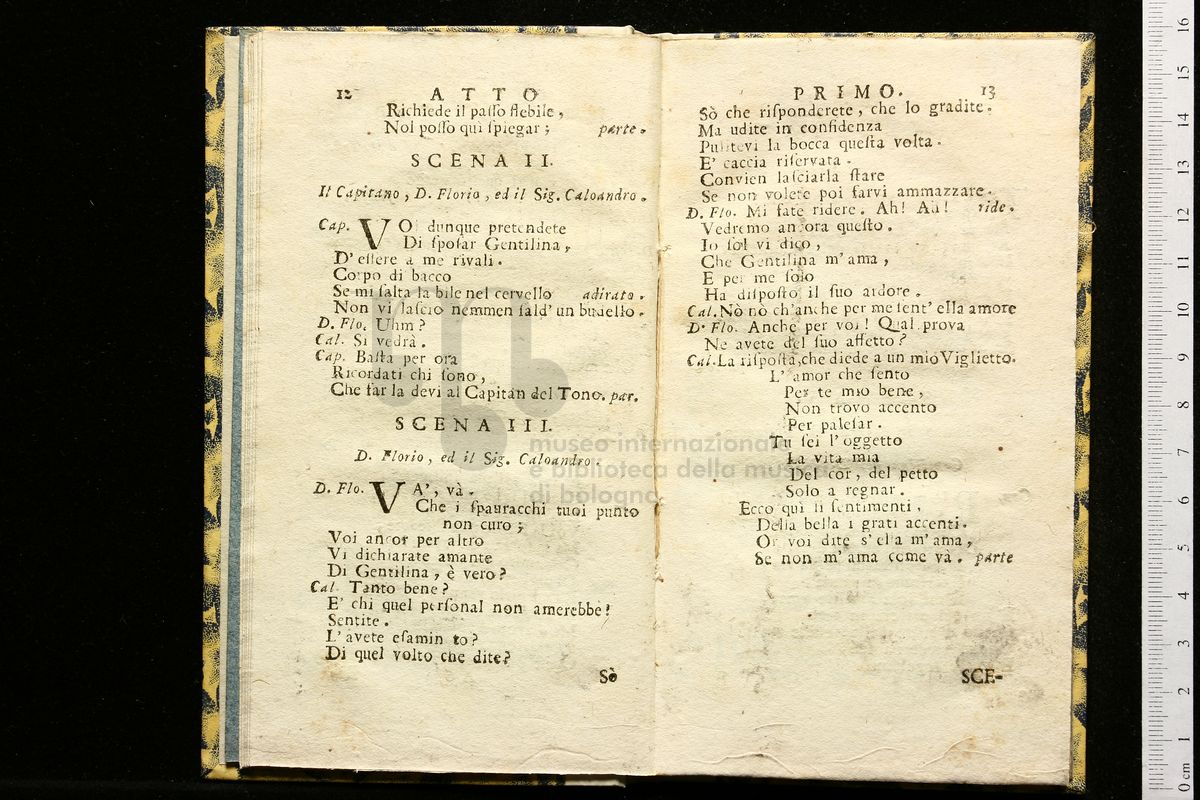 12 ATTO
Richiede il paſſo flebile,
Nol poſſo quì ſpiegar; parte.
SCENA II.
Il Capitano, D. Florio, ed il Sig. Caloandro.
Cap. VOi dunque pretendete
Di ſpoſar Gentilina,
D'eſſere a me rivali.
Corpo di bacco
Se mi ſalta la bile nel cervello adirato.
Non vi laſcio nemmen ſald' un budello.
D. Flo. Uhm?
Cal. Si vedrà.
Cap. Baſta per ora
Ricordati chi ſono,
Che far la devi al Capitan del Tono. par.
SCENA III.
D. Florio, ed il Sig. Caloandro.
D. Flo. VA', và.
Che i ſpauracchi tuoi punto
non curo;
Voi ancor per altro
Vi dichiarate amante
Di Gentilina, è vero?
Cal. Tanto bene?
E' chi quel perſonal non amerebbe!
Sentite.
L'avete eſamin to?
Di quel volto che dite?
Sò
PRIMO. 13
Sò che riſponderete, che lo gradite.
Ma udite in confidenza
Pulitevi la bocca queſta volta.
E' caccia riſervata.
Convien laſciarla ſtare
Se non volete poi farvi ammazzare.
D. Flo. Mi fate ridere. Ah! Ah! ride.
Vedremo ancora queſto.
Io ſol vi dico,
Che Gentilina m'ama,
E per me ſolo
Ha diſpoſto il ſuo ardore.
Cal. Nò nò ch'anche per me ſent' ella amore
D. Flo. Anche per voi! Qual prova
Ne avete del ſuo affetto?
Cal. La riſpoſta, che diede a un mio Viglietto.
L'amor che ſento
Per te mio bene,
Non trovo accento
Per paleſar.
Tu ſei l'oggetto
La vita mia
Del cor, del petto
Solo a regnar.
Ecco quì li ſentimenti,
Della bella i grati accenti.
Or voi dite s'ella m'ama,
Se non m'ama come và. parte
SCE-
museo internazionale
e biblioteca della musica
di bologna